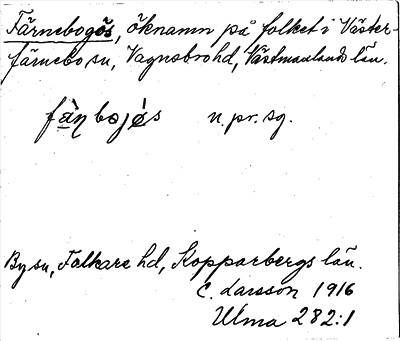 Färnebogös, öknamn på folket i Väster-
färnebo sn, Vagnsbro hd, Västmanlands län.
fàṇbojǿs n. pr. sg.
By sn, Folkare hd, Kopparbergs län.
C. Larsson 1916
Ulma 282:1